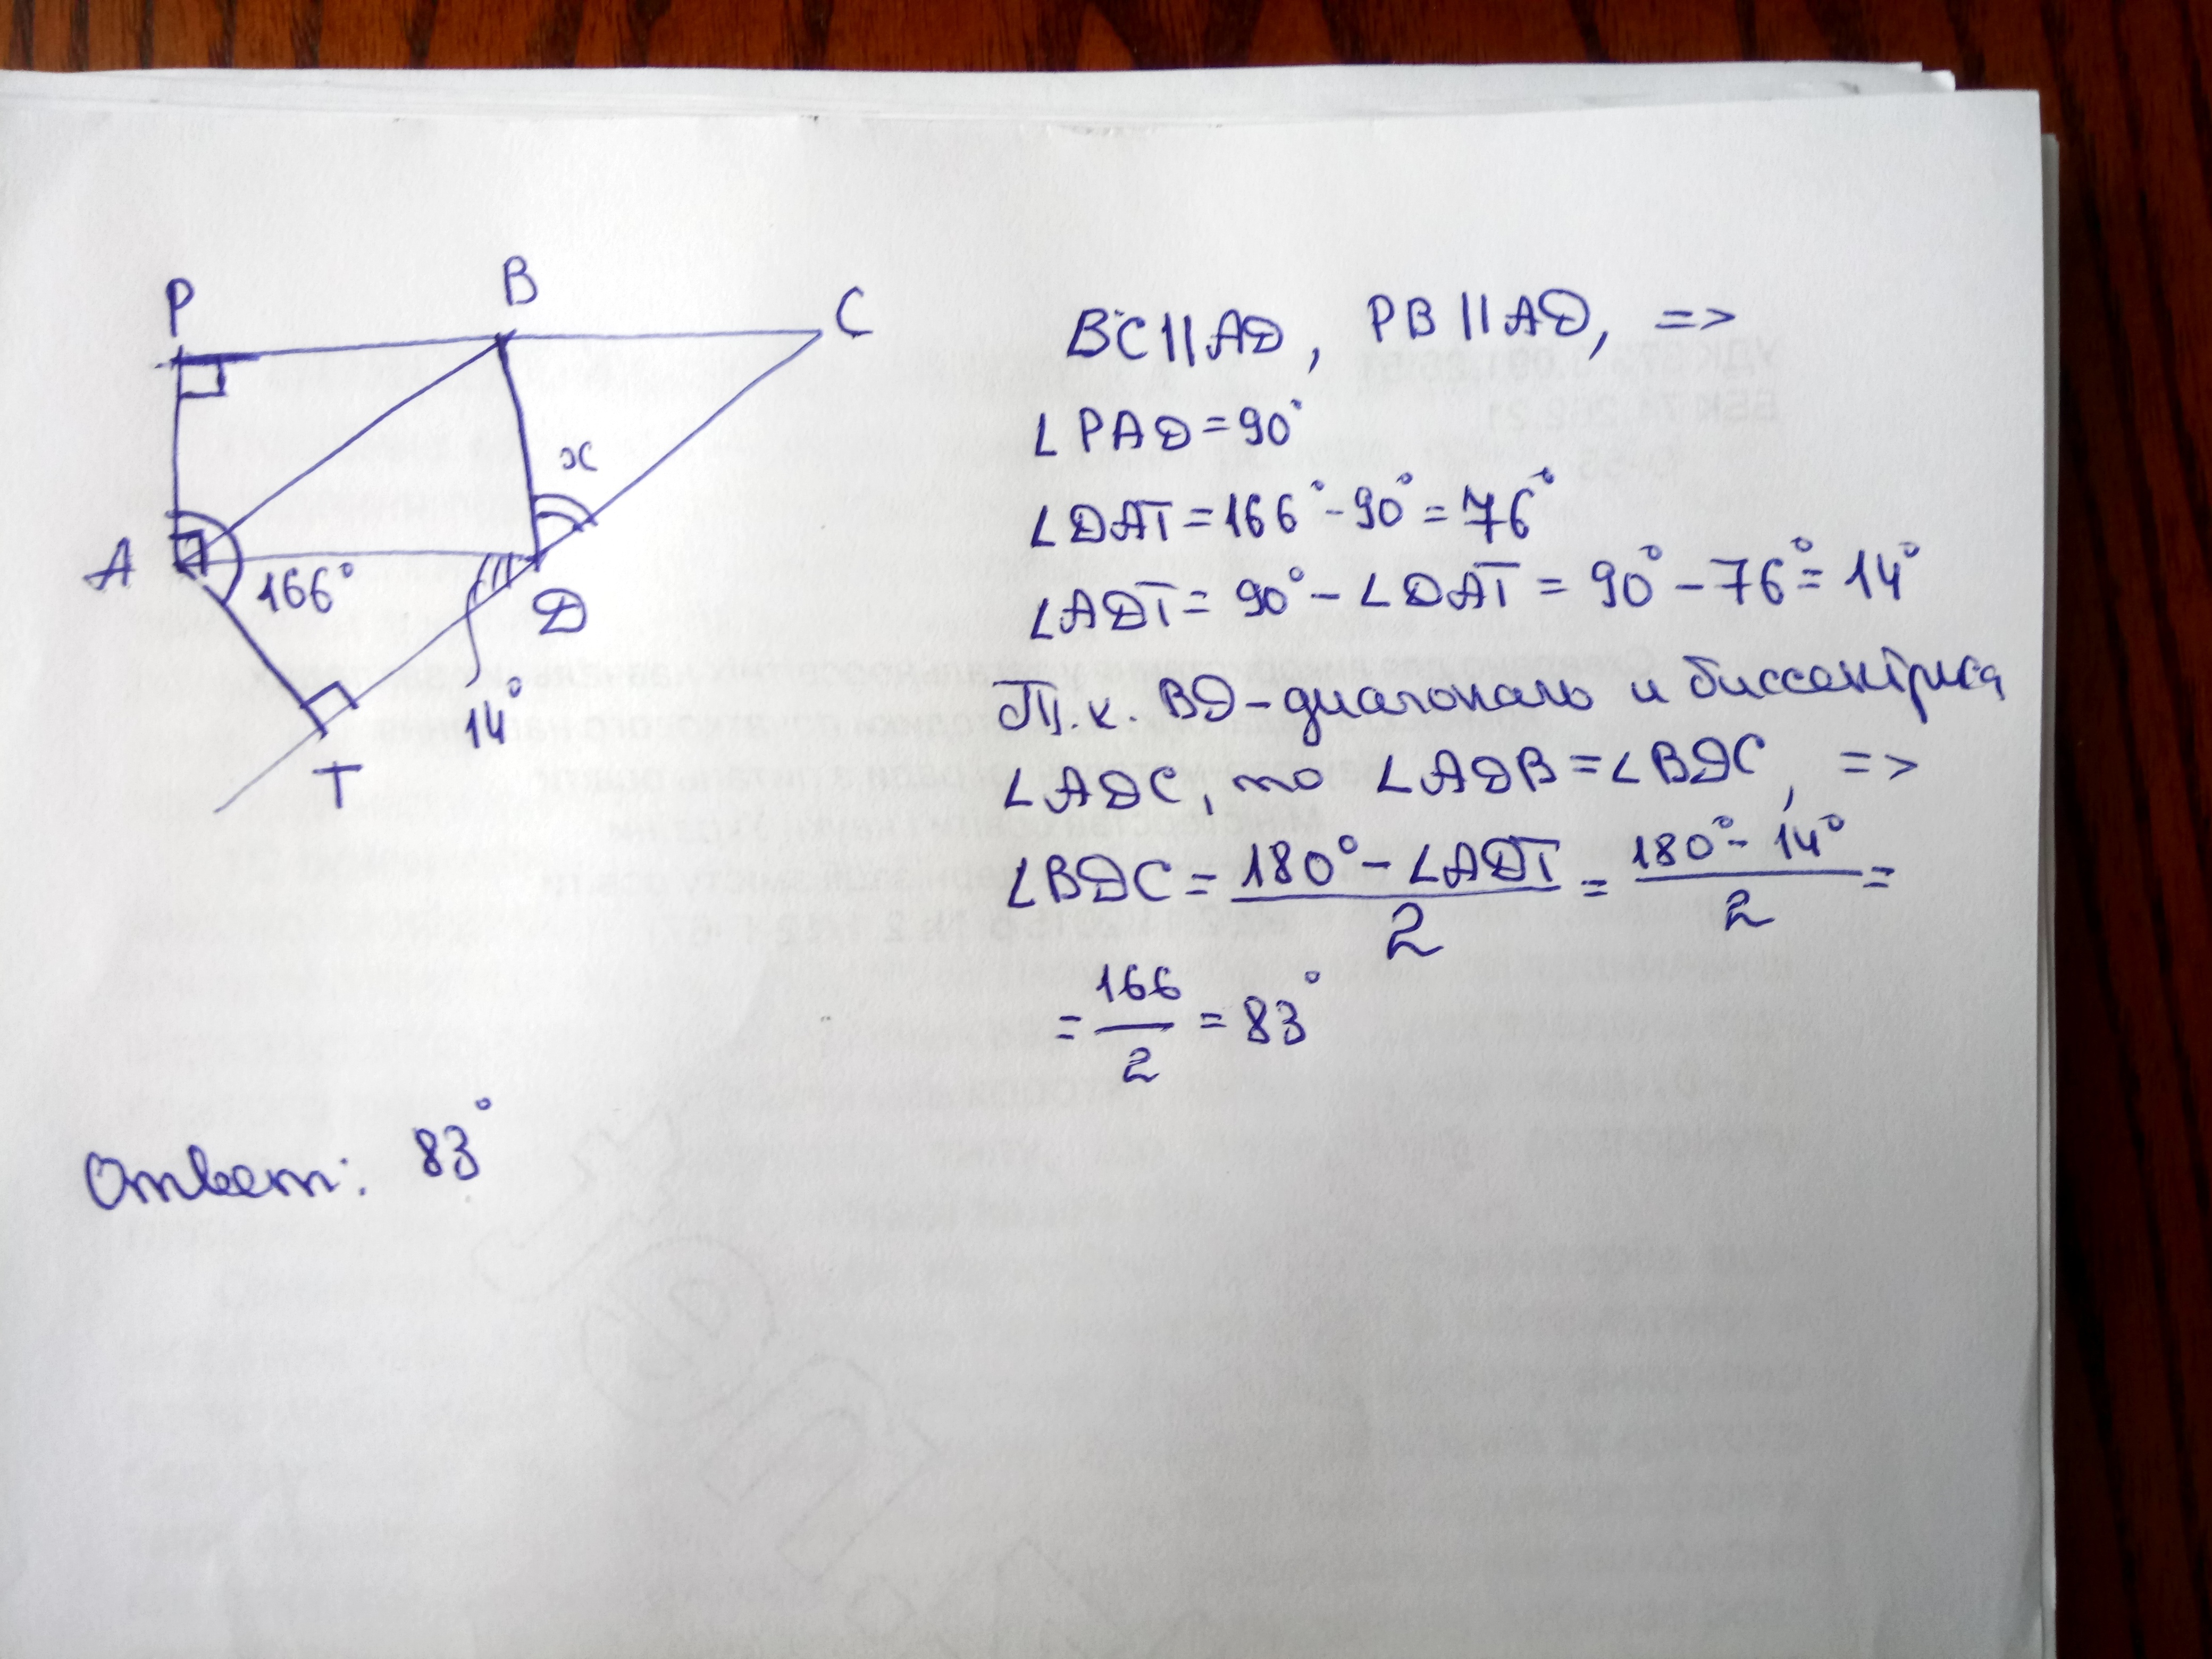 P
B
C
x
A
166°
D
14°
T
BC||AD, PB||AD, =>
∠PAD=90°
∠DAT=166°-90°=76°
∠ADT=90°-∠DAT=90°-76°=14°
Т.к. BD-диагональ и биссектриса
∠ADC, то ∠ADB=∠BDC, =>
∠BDC=(180°-∠ADT)/2=(180°-14°)/2=
=166/2=83°
Ответ: 83°